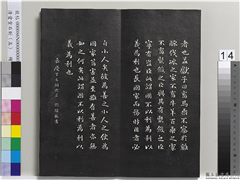 者也孟獻子曰畜馬乘不察於雞
豚伐冰之家不畜牛羊百乘之家
不畜聚斂之臣與其有聚斂之臣
寧有盜臣此謂國不以利為利以
義為利也長國家而務財用者必
自小人矣彼為善之小人之使為
國家菑害並至雖有善者亦無
如之何矣此謂國不以利為利以
義為利也
14